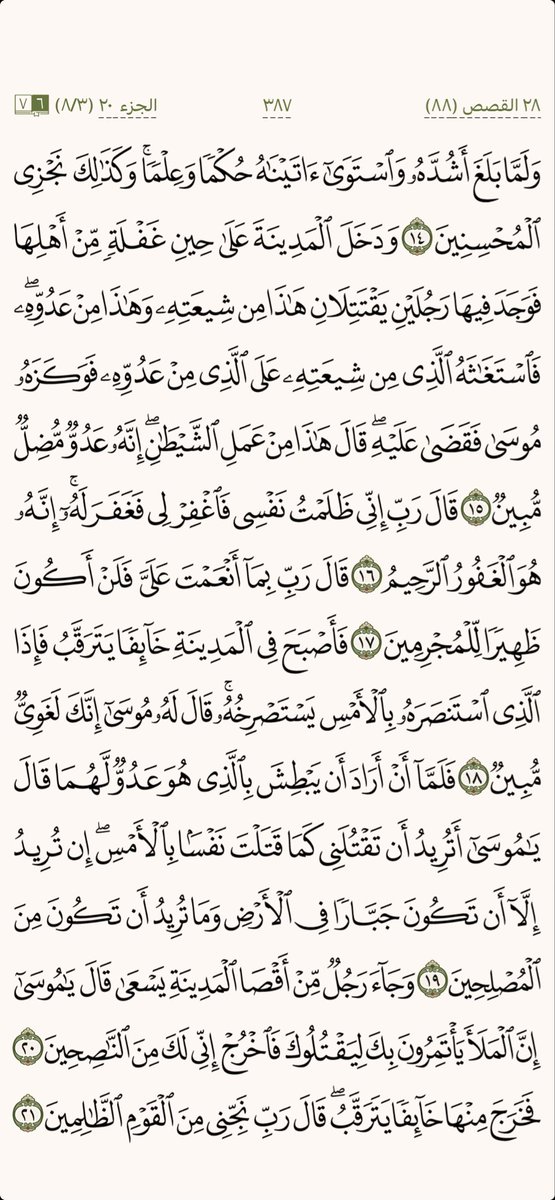 ٢٨ القصص (٨٨) ٣٨٧ الجزء ٢٠ (٨/٣) ٦ ٧
وَلَمَّا بَلَغَ أَشُدَّهُۥ وَٱسۡتَوَىٰٓ ءَاتَيۡنَٰهُ حُكۡمٗا وَعِلۡمٗاۚ وَكَذَٰلِكَ نَجۡزِي
ٱلۡمُحۡسِنِينَ ١٤ وَدَخَلَ ٱلۡمَدِينَةَ عَلَىٰ حِينِ غَفۡلَةٖ مِّنۡ أَهۡلِهَا
فَوَجَدَ فِيهَا رَجُلَيۡنِ يَقۡتَتِلَانِ هَٰذَا مِن شِيعَتِهِۦ وَهَٰذَا مِنۡ عَدُوِّهِۦۖ
فَٱسۡتَغَٰثَهُ ٱلَّذِي مِن شِيعَتِهِۦ عَلَى ٱلَّذِي مِنۡ عَدُوِّهِۦ فَوَكَزَهُۥ
مُوسَىٰ فَقَضَىٰ عَلَيۡهِۖ قَالَ هَٰذَا مِنۡ عَمَلِ ٱلشَّيۡطَٰنِۖ إِنَّهُۥ عَدُوّٞ مُّضِلّٞ
مُّبِينٞ ١٥ قَالَ رَبِّ إِنِّي ظَلَمۡتُ نَفۡسِي فَٱغۡفِرۡ لِي فَغَفَرَ لَهُۥٓۚ إِنَّهُۥ
هُوَ ٱلۡغَفُورُ ٱلرَّحِيمُ ١٦ قَالَ رَبِّ بِمَآ أَنۡعَمۡتَ عَلَيَّ فَلَنۡ أَكُونَ
ظَهِيرٗا لِّلۡمُجۡرِمِينَ ١٧ فَأَصۡبَحَ فِي ٱلۡمَدِينَةِ خَآئِفٗا يَتَرَقَّبُ فَإِذَا
ٱلَّذِي ٱسۡتَنصَرَهُۥ بِٱلۡأَمۡسِ يَسۡتَصۡرِخُهُۥۚ قَالَ لَهُۥ مُوسَىٰٓ إِنَّكَ لَغَوِيّٞ
مُّبِينٞ ١٨ فَلَمَّآ أَنۡ أَرَادَ أَن يَبۡطِشَ بِٱلَّذِي هُوَ عَدُوّٞ لَّهُمَا قَالَ
يَٰمُوسَىٰٓ أَتُرِيدُ أَن تَقۡتُلَنِي كَمَا قَتَلۡتَ نَفۡسَۢا بِٱلۡأَمۡسِۖ إِن تُرِيدُ
إِلَّآ أَن تَكُونَ جَبَّارٗا فِي ٱلۡأَرۡضِ وَمَا تُرِيدُ أَن تَكُونَ مِنَ
ٱلۡمُصۡلِحِينَ ١٩ وَجَآءَ رَجُلٞ مِّنۡ أَقۡصَا ٱلۡمَدِينَةِ يَسۡعَىٰ قَالَ يَٰمُوسَىٰٓ
إِنَّ ٱلۡمَلَأَ يَأۡتَمِرُونَ بِكَ لِيَقۡتُلُوكَ فَٱخۡرُجۡ إِنِّي لَكَ مِنَ ٱلنَّٰصِحِينَ ٢٠
فَخَرَجَ مِنۡهَا خَآئِفٗا يَتَرَقَّبُۖ قَالَ رَبِّ نَجِّنِي مِنَ ٱلۡقَوۡمِ ٱلظَّٰلِمِينَ ٢١